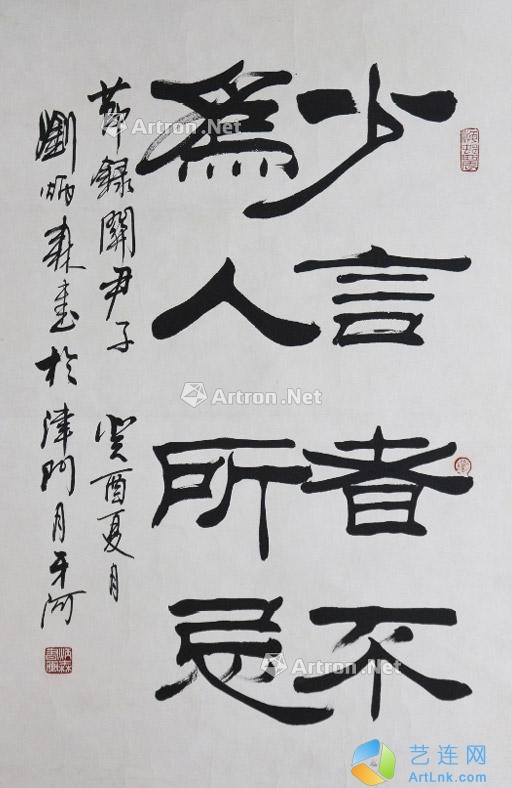 少言者不
為人所忌
節録關尹子 癸酉夏月
劉炳森書於津門月牙河
炳森書画
Artron.Net
Artron.Net
Artron.Net
艺连网
ArtLnk.com